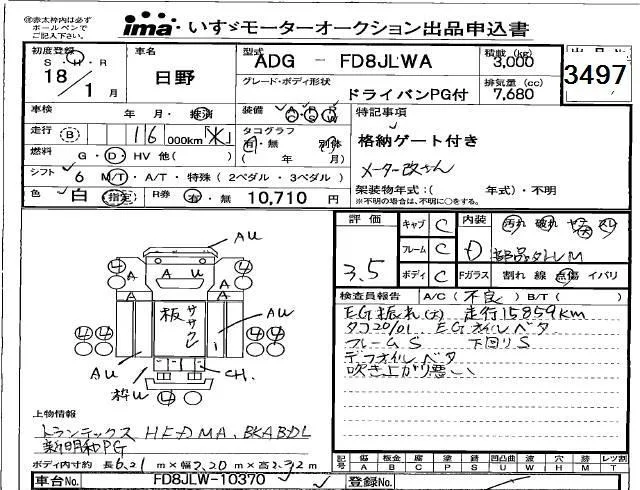 ㊟赤太枠内は必ず
ボールペンで
ご記入下さい。
ima いすゞモーターオークション出品申込書
初度登録 S・H・R 18年 1月
車名 日野
型式 ADG - FD8JLWA
積載 (kg) 3,000
グレード・ボディ形状 ドライバンPG付
排気量 (cc) 7,680
3497
車検 年・月・抹消
装備 A P A
C S W
特記事項
走行 B 16 000km 米
タコグラフ 有・無 別体
( 年 月)
格納ゲート付き
燃料 G・D・HV 他( )
メーター改ざん
シフト 6 M/T・A/T・特殊(2ペダル・3ペダル)
架装物年式:( 年式)・不明
※不明の場合は、不明に○をする。
色 白 指定
R券 有・無 10,710 円
評価 3.5
キャブ C
フレーム C
ボディ C
内装 D
汚れ 破れ
部品タリM
Fガラス 割れ 線 点傷 イバリ
検査員報告 A/C (不良) B/T ( )
EG振れ(大) 走行15859km
タコ20/01 EGオイルベタ
フレームS 下回りS
デフオイルベタ
吹き上がり悪い
AU
4 4
A U
A A
4 板 ササクレ AU 4 4
AU CH.
枠U 4
上物情報
トランテックス HEDMA.BKABDL
新明和PG
ボディ内寸約 長6.21m×幅2.20m×高2.32m
記号 傷 板金 座 塗 錆 凹 凸凹曲 歪 穴 跡 レツ割
A B C P S U W H M T
車台No. FD8JLW-10370
登録No.